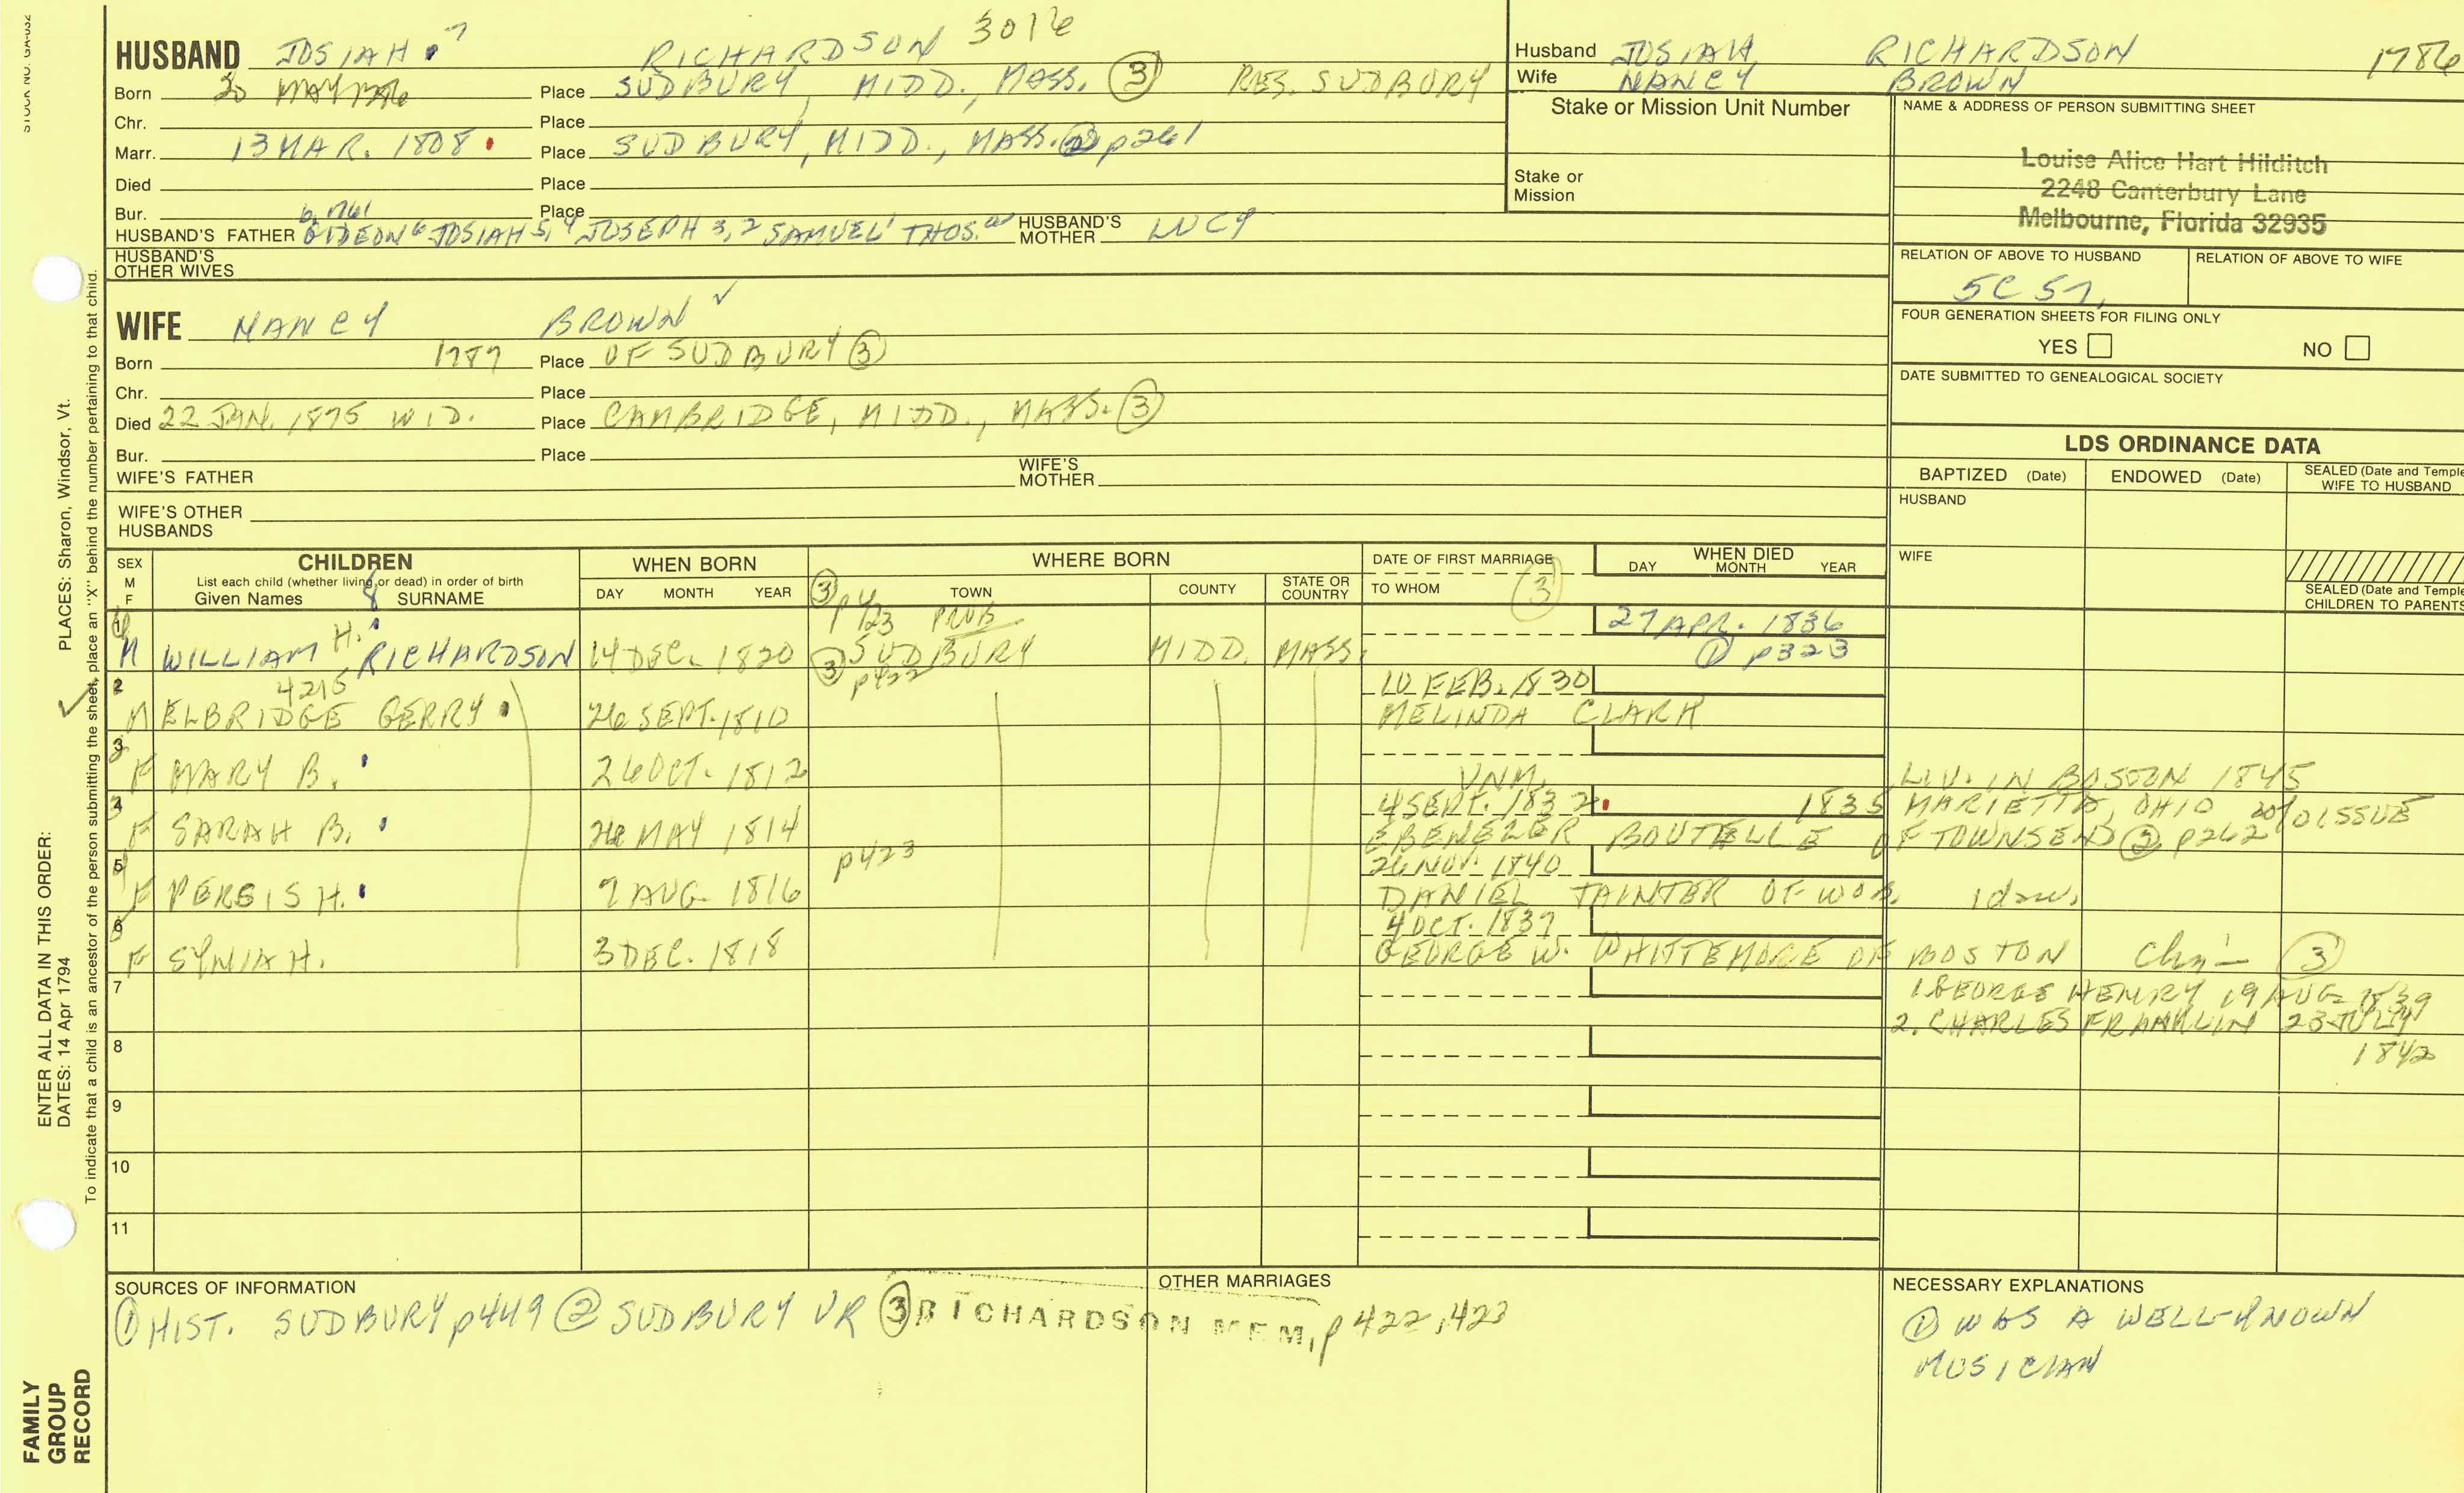 STOCK NO. GA-632
HUSBAND JOSIAH 7 RICHARDSON 3016
Born 30 MAY 1786 Place SUDBURY, MIDD., MASS. ③ RES. SUDBURY
Chr. Place
Marr. 13 MAR. 1808 Place SUDBURY, MIDD., MASS. ② p261
Died Place
Bur. Place
b. 1761
HUSBAND'S FATHER GIDEON 6 JOSIAH 5,4 JOSEPH 3,2 SAMUEL 1 THOS. HUSBAND'S MOTHER LUCY
HUSBAND'S OTHER WIVES
Husband JOSIAH RICHARDSON 1786
Wife NANCY BROWN
Stake or Mission Unit Number
Stake or Mission
NAME & ADDRESS OF PERSON SUBMITTING SHEET
Louise Alice Hart Hilditch
2248 Canterbury Lane
Melbourne, Florida 32935
RELATION OF ABOVE TO HUSBAND RELATION OF ABOVE TO WIFE
5C 5
FOUR GENERATION SHEETS FOR FILING ONLY
YES NO
DATE SUBMITTED TO GENEALOGICAL SOCIETY
WIFE NANCY BROWN ✓
Born 1787 Place OF SUDBURY ③
Chr. Place
Died 22 JAN. 1875 WID. Place CAMBRIDGE, MIDD., MASS. ③
Bur. Place
WIFE'S FATHER WIFE'S MOTHER
WIFE'S OTHER HUSBANDS
LDS ORDINANCE DATA
BAPTIZED (Date) ENDOWED (Date) SEALED (Date and Temple WIFE TO HUSBAND
HUSBAND
WIFE
SEALED (Date and Temple CHILDREN TO PARENTS
SEX M F
CHILDREN
List each child (whether living or dead) in order of birth
Given Names 8 SURNAME
WHEN BORN
DAY MONTH YEAR
WHERE BORN
TOWN COUNTY STATE OR COUNTRY
DATE OF FIRST MARRIAGE
TO WHOM ③
WHEN DIED
DAY MONTH YEAR
③ p423 PROB
1 M WILLIAM H. RICHARDSON 14 DEC. 1820 SUDBURY MIDD. MASS. 27 APR. 1836
① p323
③ p422
2 4215 10 FEB. 1830
M ELBRIDGE GERRY 26 SEPT. 1810 MELINDA CLARK
3 F MARY B. 26 OCT. 1812 UNM. LIV. IN BOSTON 1845
4 4 SEPT. 1832 1835 MARIETTA, OHIO
F SARAH B. 26 MAY 1814 EBENEZER BOUTELLE OF TOWNSEND ② p262
5 p423 26 NOV. 1840
F PERSIS H. 7 AUG. 1816 DANIEL TAINTER OF WOB. 1 daw.
6 4 OCT. 1837
F SYNIA H. 3 DEC. 1818 GEORGE W. WHITTEMORE OF BOSTON Chn— ③
7 1. GEORGE HENRY 19 AUG. 1839
2. CHARLES FRANKLIN 23 JULY
8 1842
9
10
11
SOURCES OF INFORMATION
① HIST. SUDBURY p449 ② SUDBURY VR ③ RICHARDSON MEM, p 422, 423
OTHER MARRIAGES
NECESSARY EXPLANATIONS
① WAS A WELL-KNOWN
MUSICIAN
PLACES: Sharon, Windsor, Vt.
To indicate that a child is an ancestor of the person submitting the sheet, place an "X" behind the number pertaining to that child.
ENTER ALL DATA IN THIS ORDER:
DATES: 14 Apr 1794
FAMILY
GROUP
RECORD